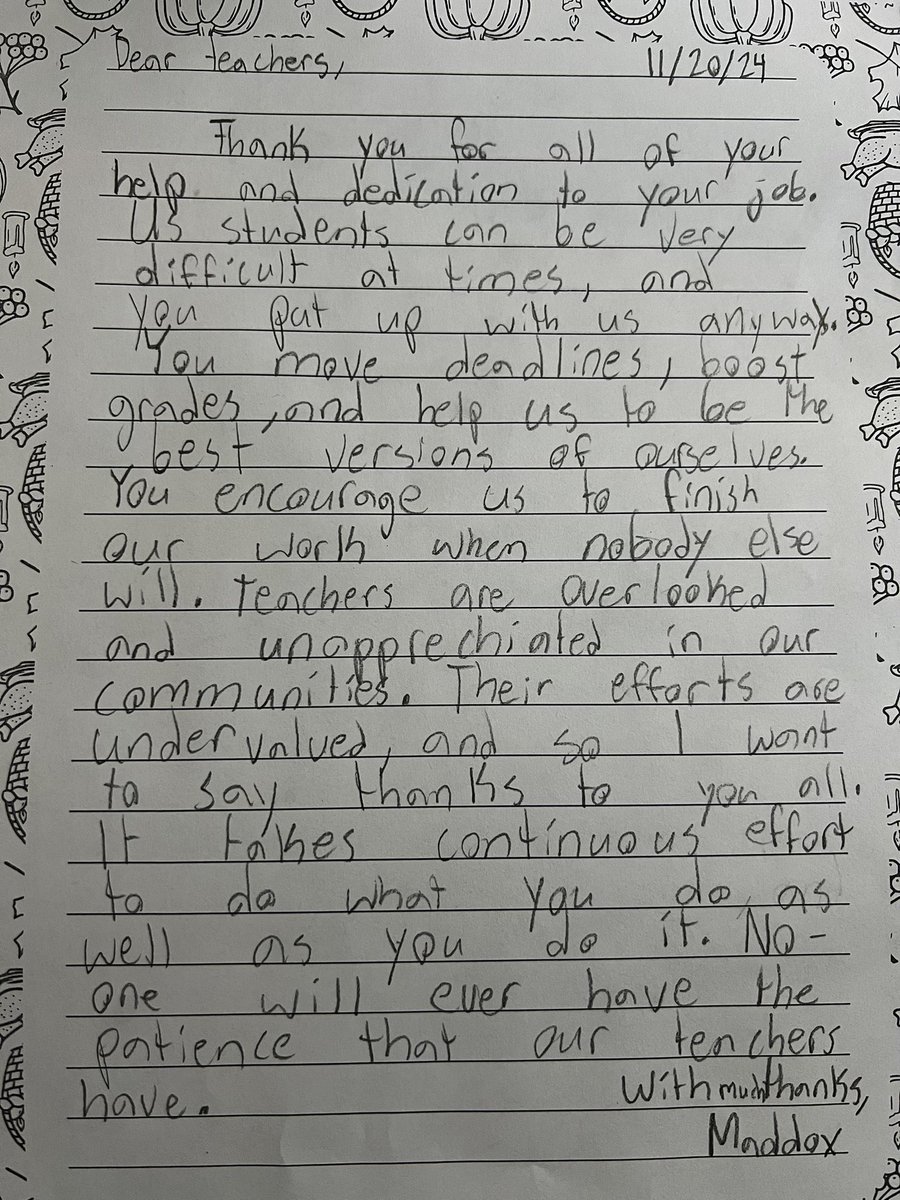 Dear teachers, 11/20/24
Thank you for all of your
help and dedication to your job.
Us students can be very
difficult at times, and
you put up with us anyway.
You move deadlines, boost
grades, and help us to be the
best versions of ourselves.
You encourage us to finish
our work when nobody else
will. Teachers are overlooked
and unapprechiated in our
communities. Their efforts are
undervalued, and so I want
to say thanks to you all.
It takes continuous effort
to do what you do as
well as you do it. No-
one will ever have the
patience that our teachers
have. With much thanks,
Maddox